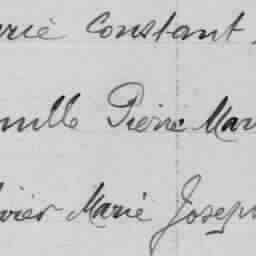 arie Constant
mille Pierre Mar
vier Marie Joseph